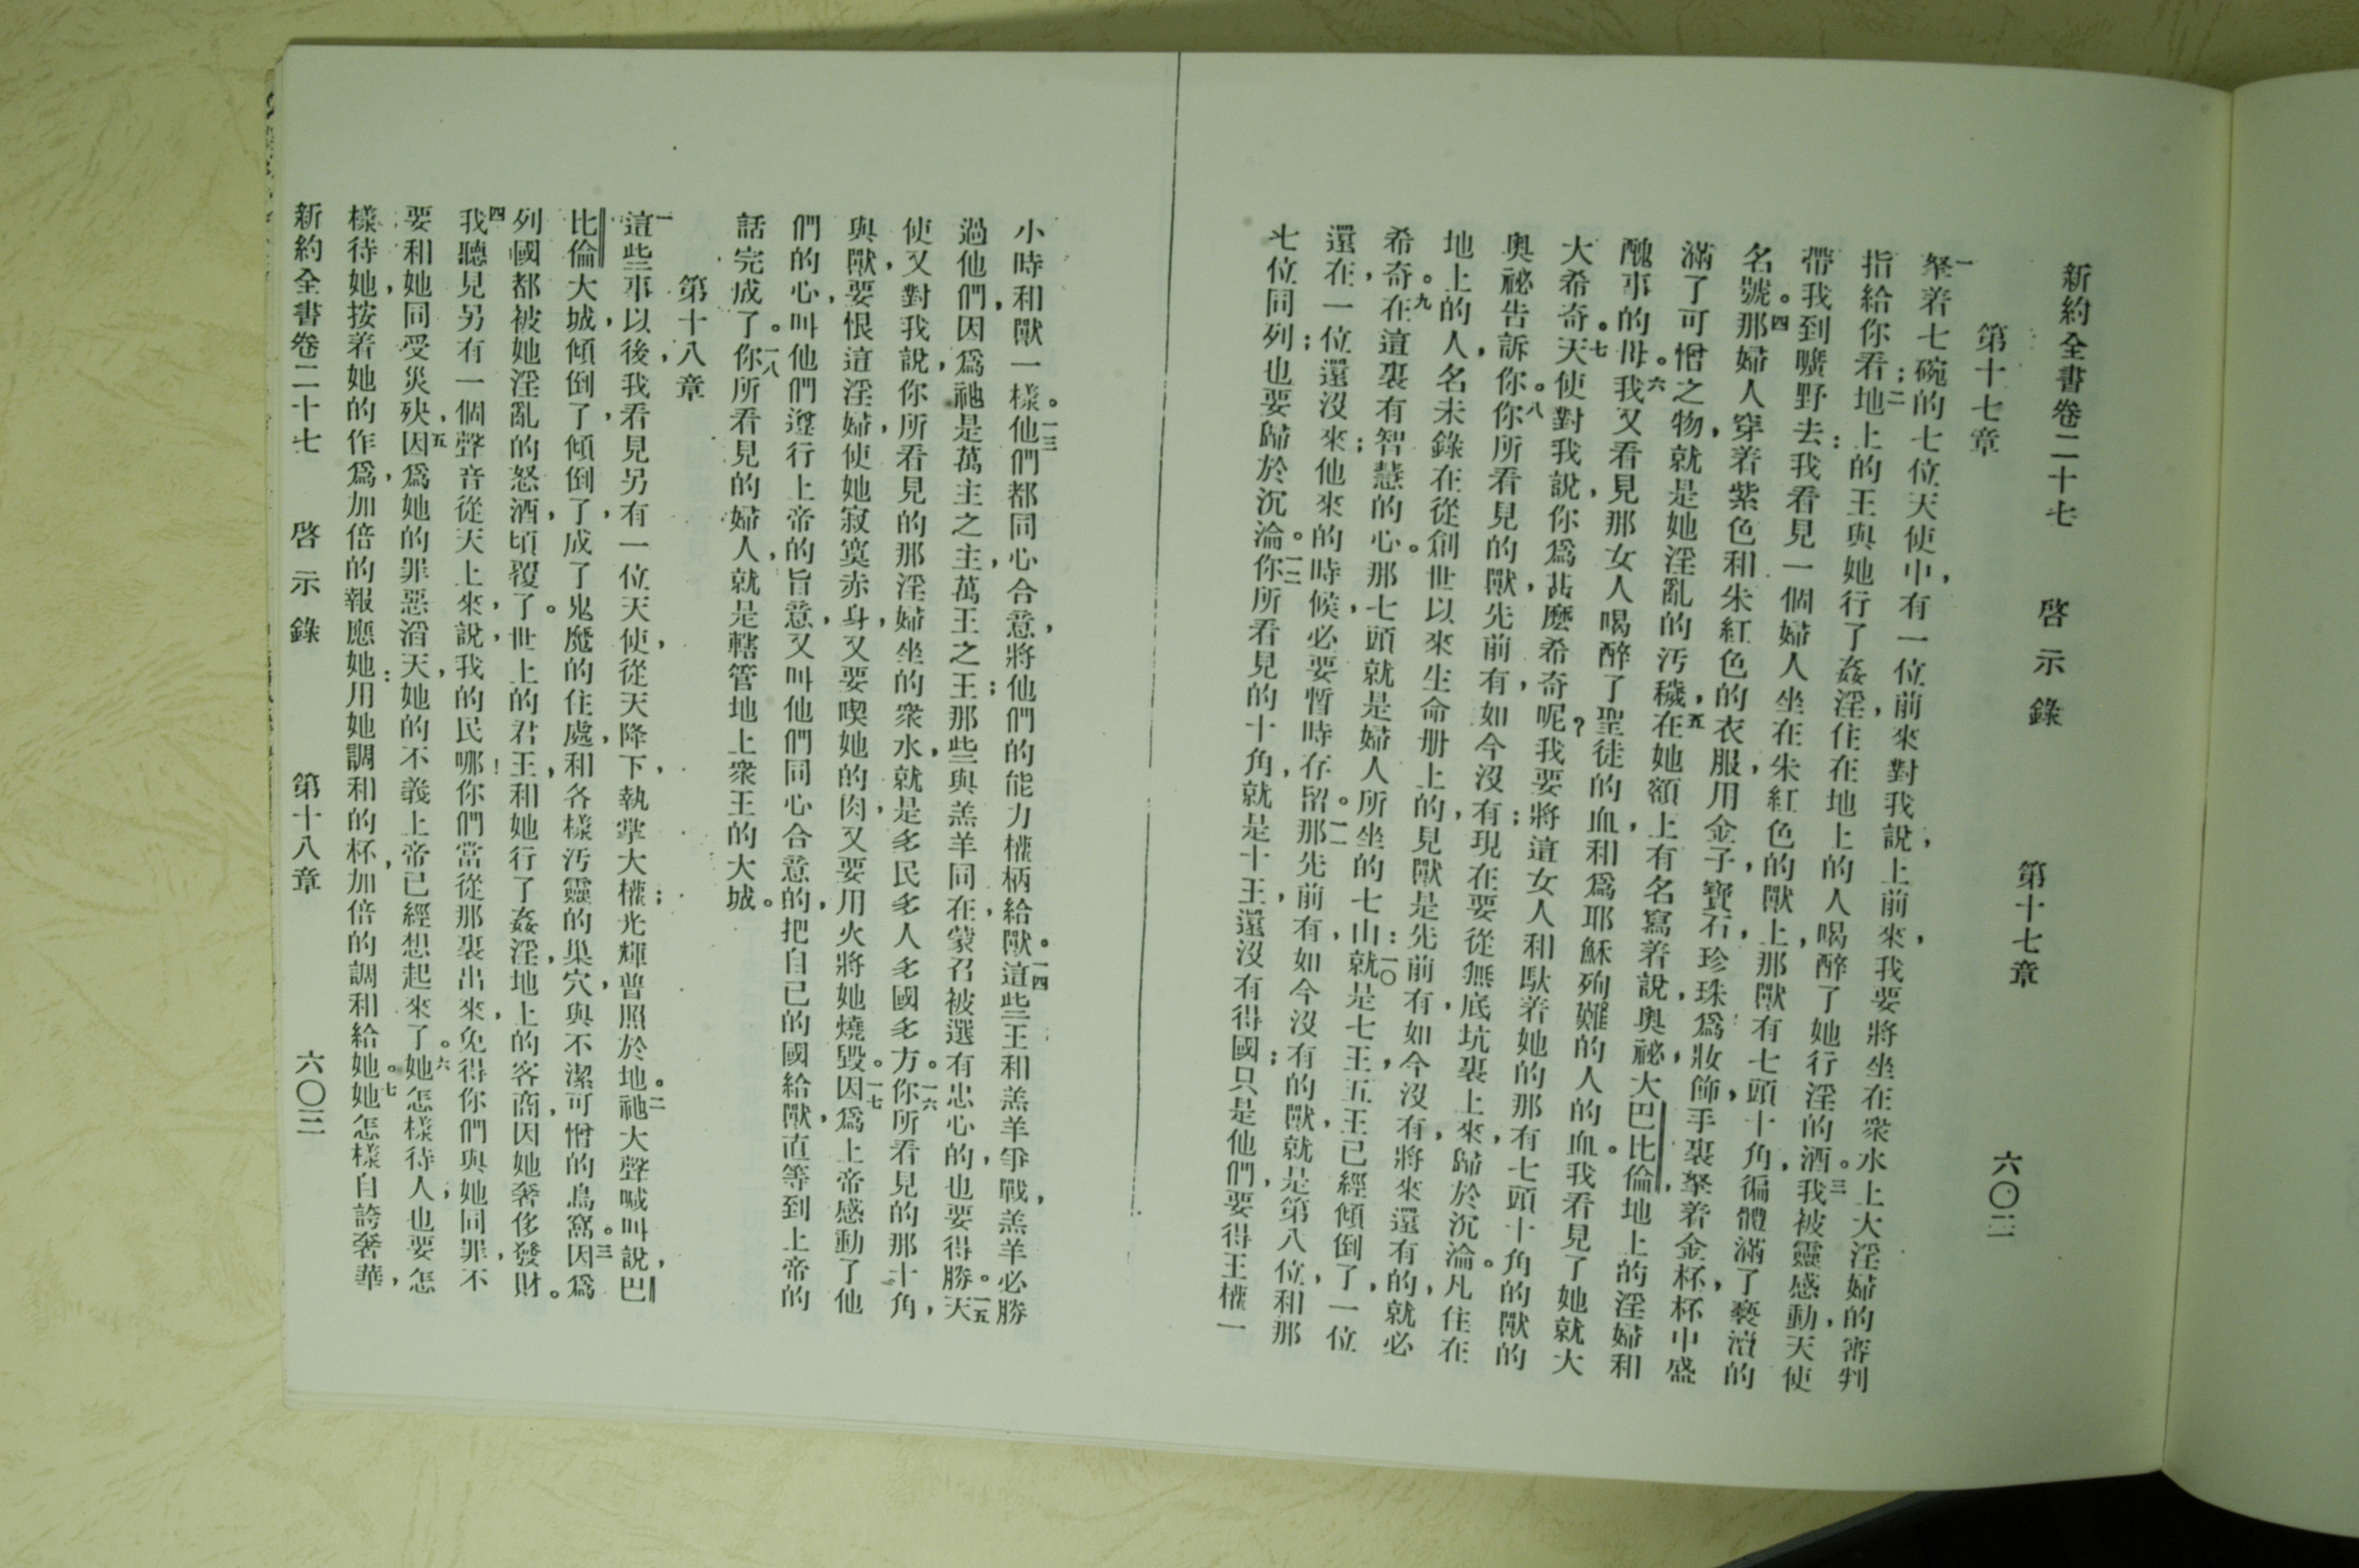 新約全書卷二十七　啓示錄　第十七章　六〇二
第十七章
一 拏着七碗的七位天使中，有一位前來對我說，上前來，我要將坐在衆水上大淫婦的審判
指給你看；二地上的王與她行了姦淫，住在地上的人，喝醉了她行淫的酒。三我被靈感動，天使
帶我到曠野去：我看見一個婦人坐在朱紅色的獸上，那獸有七頭十角，徧體滿了褻瀆的
名號。四那婦人穿着紫色和朱紅色的衣服，用金子，寶石，珍珠爲妝飾，手裏拏着金杯，杯中盛
滿了可憎之物，就是她淫亂的汚穢，五在她額上有名寫着說，奧祕，大巴比倫，地上的淫婦和
醜事的母。六我又看見那女人喝醉了聖徒的血，和爲耶穌殉難的人的血。我看見了她就大
大希奇。七天使對我說，你爲甚麼希奇呢？我要將這女人和馱着她的那有七頭十角的獸的
奧祕告訴你。八你所看見的獸，先前有，如今沒有；現在要從無底坑裏上來，歸於沉淪。凡住在
地上的人，名未錄在從創世以來生命册上的，見獸是先前有，如今沒有，將來還有的，就必
希奇。九在這裏有智慧的心。那七頭就是婦人所坐的七山：一〇就是七王，五王已經傾倒了，一位
還在，一位還沒來；他來的時候，必要暫時存留。一一那先前有，如今沒有的獸，就是第八位，和那
七位同列；也要歸於沉淪。一二你所看見的十角，就是十王，還沒有得國；只是他們，要得王權一
小時，和獸一樣。一三他們都同心合意，將他們的能力權柄給獸。一四這些王和羔羊爭戰，羔羊必勝
過他們，因爲祂是萬主之主，萬王之王；那些與羔羊同在，蒙召被選有忠心的，也要得勝。一五天
使又對我說，你所看見的那淫婦坐的衆水，就是多民多人多國多方。一六你所看見的那十角，
與獸，要恨這淫婦，使她寂寞赤身，又要喫她的肉，又要用火將她燒毀。一七因爲上帝感動了他
們的心，叫他們遵行上帝的旨意，又叫他們同心合意的，把自己的國給獸，直等到上帝的
話完成了。一八你所看見的婦人，就是轄管地上衆王的大城。
第十八章
一 這些事以後，我看見另有一位天使，從天降下，執掌大權；光輝普照於地。二祂大聲喊叫說，巴
比倫大城，傾倒了，傾倒了，成了鬼魔的住處，和各樣汚靈的巢穴，與不潔可憎的鳥窩。三因爲
列國都被她淫亂的怒酒，頃覆了。世上的君王，和她行了姦淫，地上的客商，因她奢侈發財。
四我聽見另有一個聲音，從天上來，說，我的民哪！你們當從那裏出來，免得你們與她同罪，不
要和她同受災殃，五因爲她的罪惡滔天，她的不義上帝已經想起來了。六她怎樣待人；也要怎
樣待她，按着她的作爲，加倍的報應她：用她調和的杯，加倍的調和給她。七她怎樣自誇奢華，
新約全書卷二十七　啓示錄　第十八章　六〇三